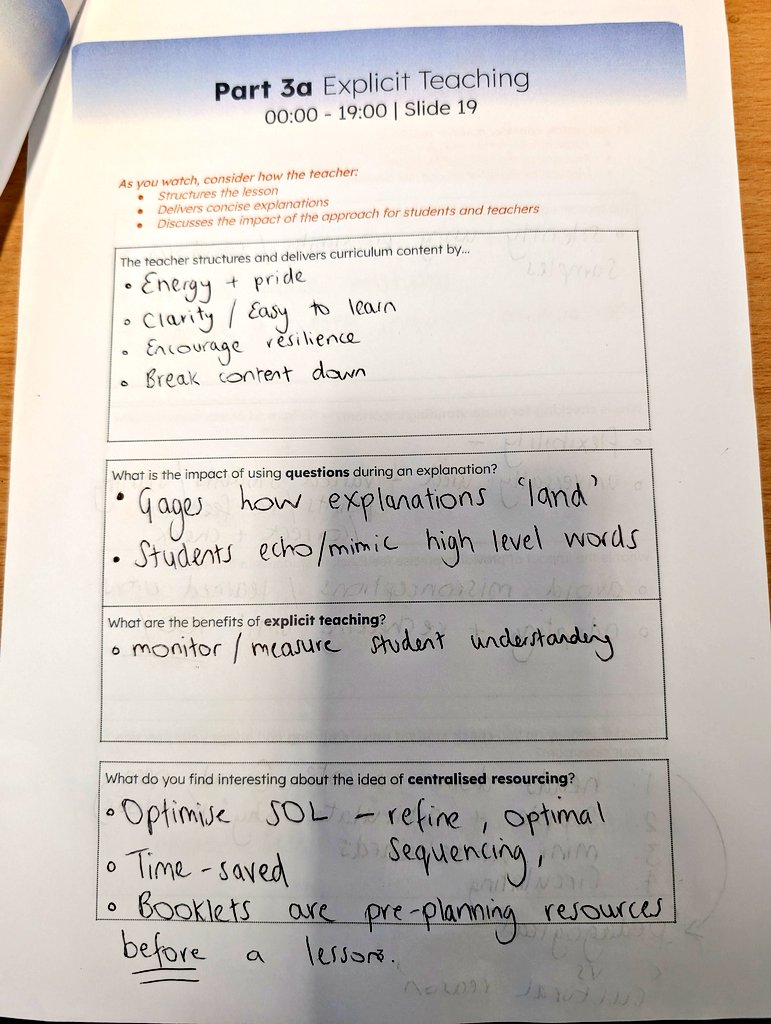 Part 3a Explicit Teaching
00:00 - 19:00 | Slide 19
As you watch, consider how the teacher:
• Structures the lesson
• Delivers concise explanations
• Discusses the impact of the approach for students and teachers
The teacher structures and delivers curriculum content by...
• Energy + pride
• Clarity / Easy to learn
• Encourage resilience
• Break content down
What is the impact of using questions during an explanation?
• Gages how explanations 'land'
• Students echo/mimic high level words
What are the benefits of explicit teaching?
• monitor / measure student understanding
What do you find interesting about the idea of centralised resourcing?
• Optimise SOL – refine, optimal
sequencing,
• Time-saved
• Booklets are pre-planning resources
before a lesson.